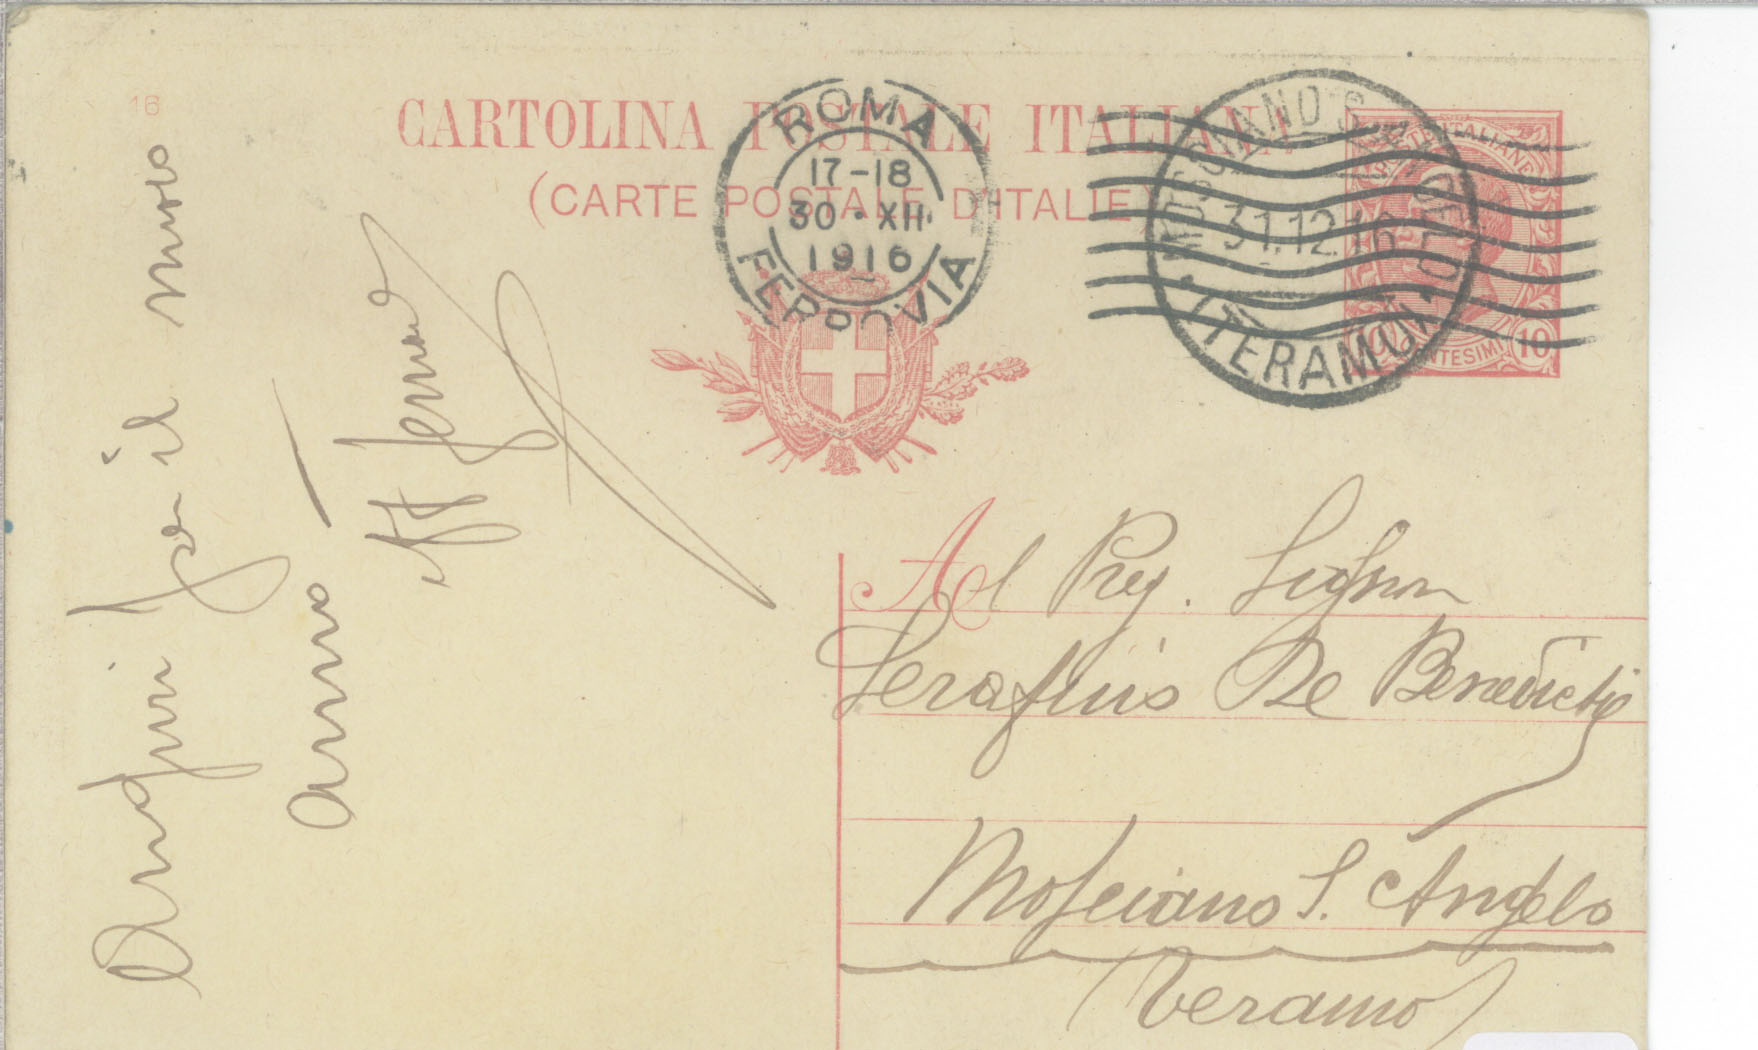 16
CARTOLINA POSTALE ITALIANA
(CARTE POSTALE D'ITALIE)
ROMA
17-18
30·XII
1916
FERROVIA
MOSCIANO S. ANGELO
31.12.16
(TERAMO)
POSTE ITALIANE
CENTESIMI 10
Auguri per il nuovo
anno
Al Preg. Signor
Serafino De Benedictis
Mosciano S. Angelo
(Teramo)